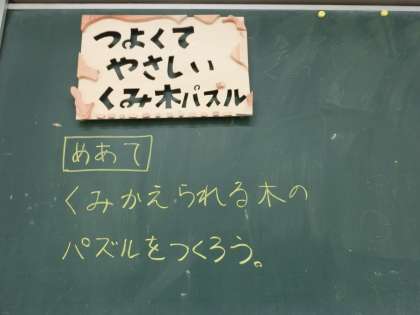 つよくて
やさしい
くみ木パズル
めあて
くみかえられる木の
パズルをつくろう。